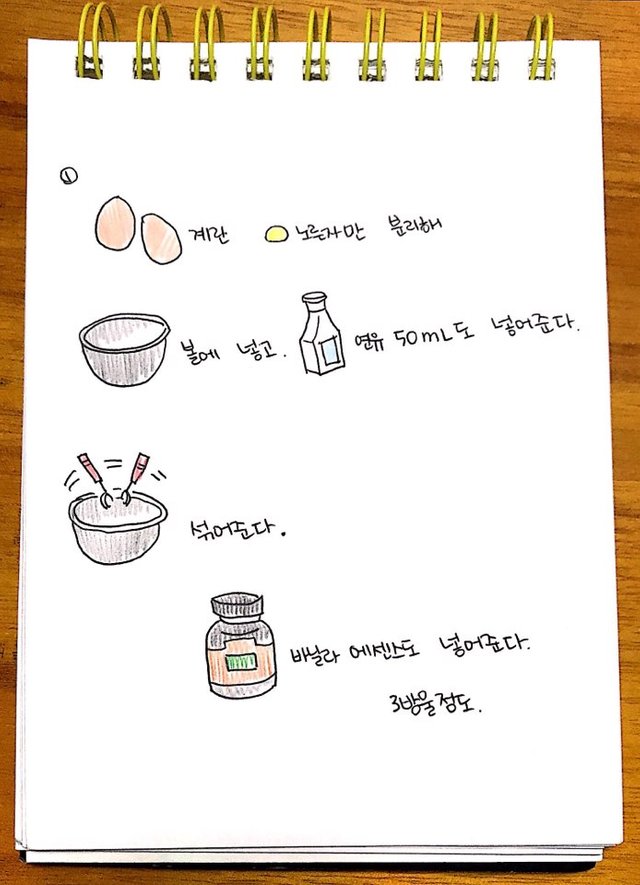 ①
계란 노른자만 분리해
볼에 넣고. 연유 50mL도 넣어준다.
섞어준다.
바닐라 에센스도 넣어준다.
3방울정도.